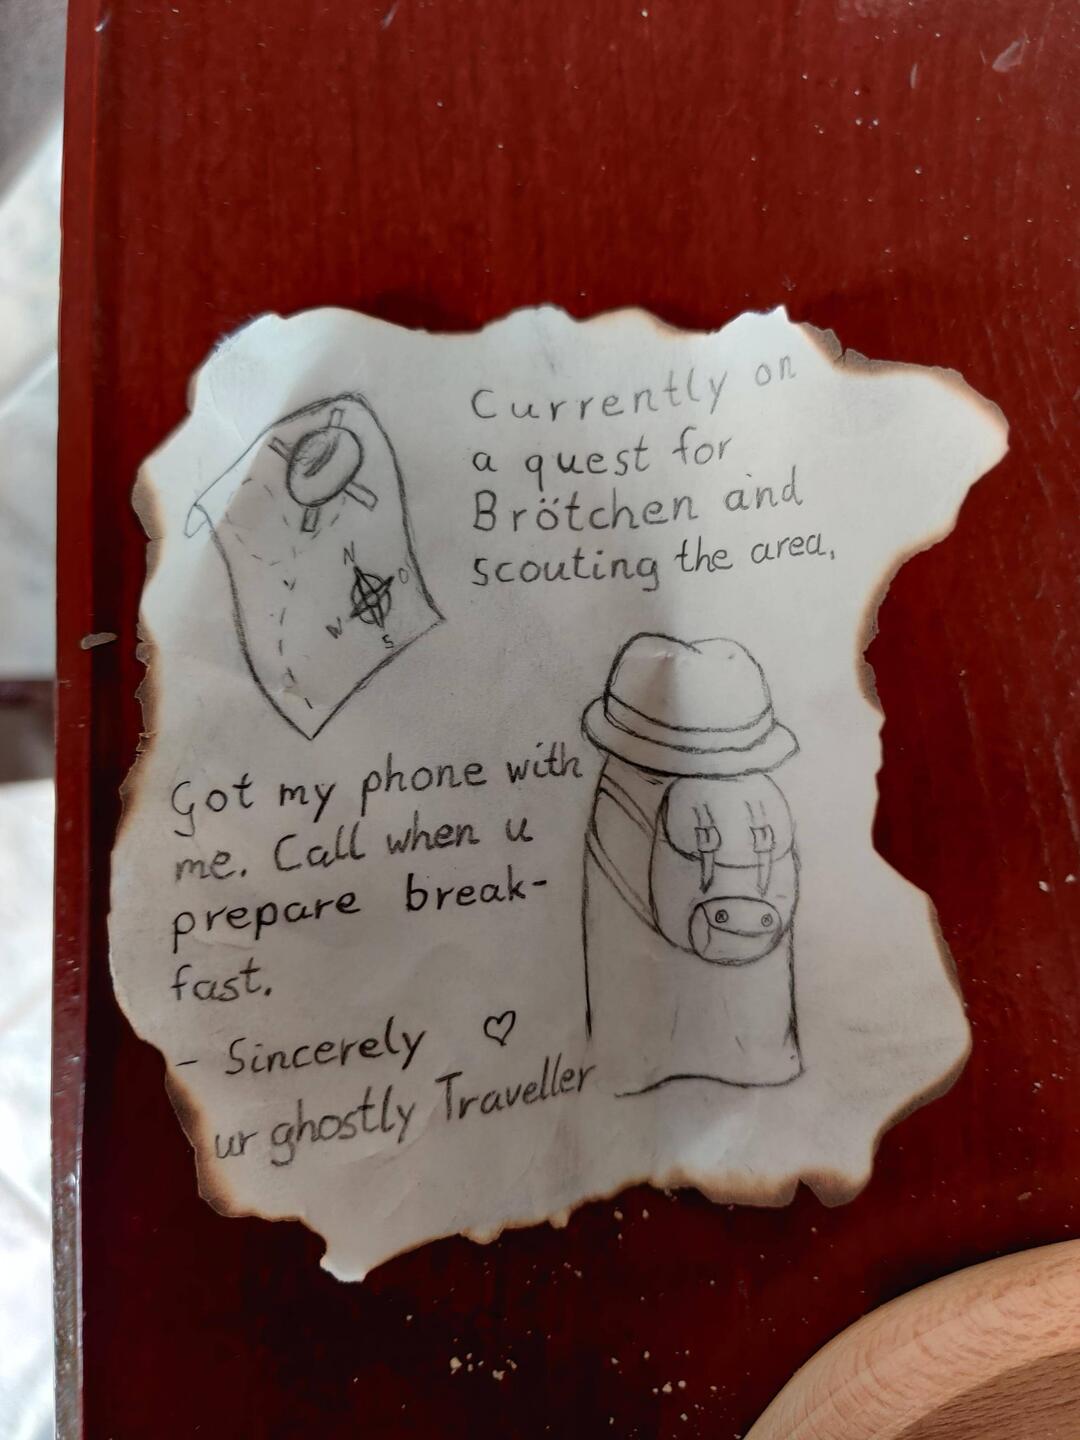 Currently on
a quest for
Brötchen and
scouting the area.
N
O
W
S
Got my phone with
me. Call when u
prepare break-
fast.
- Sincerely ♡
ur ghostly Traveller